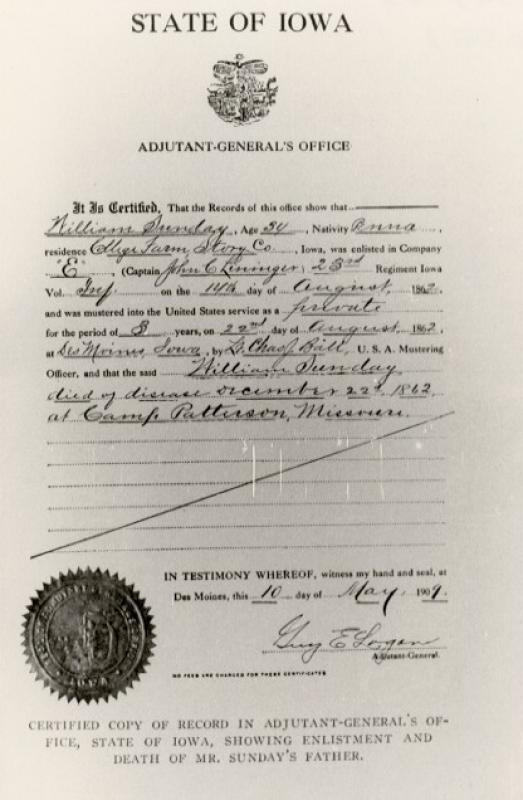 STATE OF IOWA
ADJUTANT-GENERAL'S OFFICE
It Is Certified, That the Records of this office show that
William Sunday, Age 34, Nativity Penna,
residence College Farm, Story Co., Iowa, was enlisted in Company
"E", (Captain John C Lininger, 23rd Regiment Iowa
Vol. Inf. on the 14th day of August, 1862
and was mustered into the United States service as a private
for the period of 3 years, on 22nd day of August, 1862,
at Des Moines, Iowa, by Lt. Chas J Ball, U. S. A. Mustering
Officer, and that the said William Sunday
died of disease December 22d, 1862,
at Camp Patterson, Missouri.
IN TESTIMONY WHEREOF, witness my hand and seal, at
Des Moines, this 10 day of May, 1909.
Guy E Logan
Adjutant-General.
NO FEES ARE CHARGED FOR THESE CERTIFICATES
CERTIFIED COPY OF RECORD IN ADJUTANT-GENERAL'S OF-
FICE, STATE OF IOWA, SHOWING ENLISTMENT AND
DEATH OF MR. SUNDAY'S FATHER.